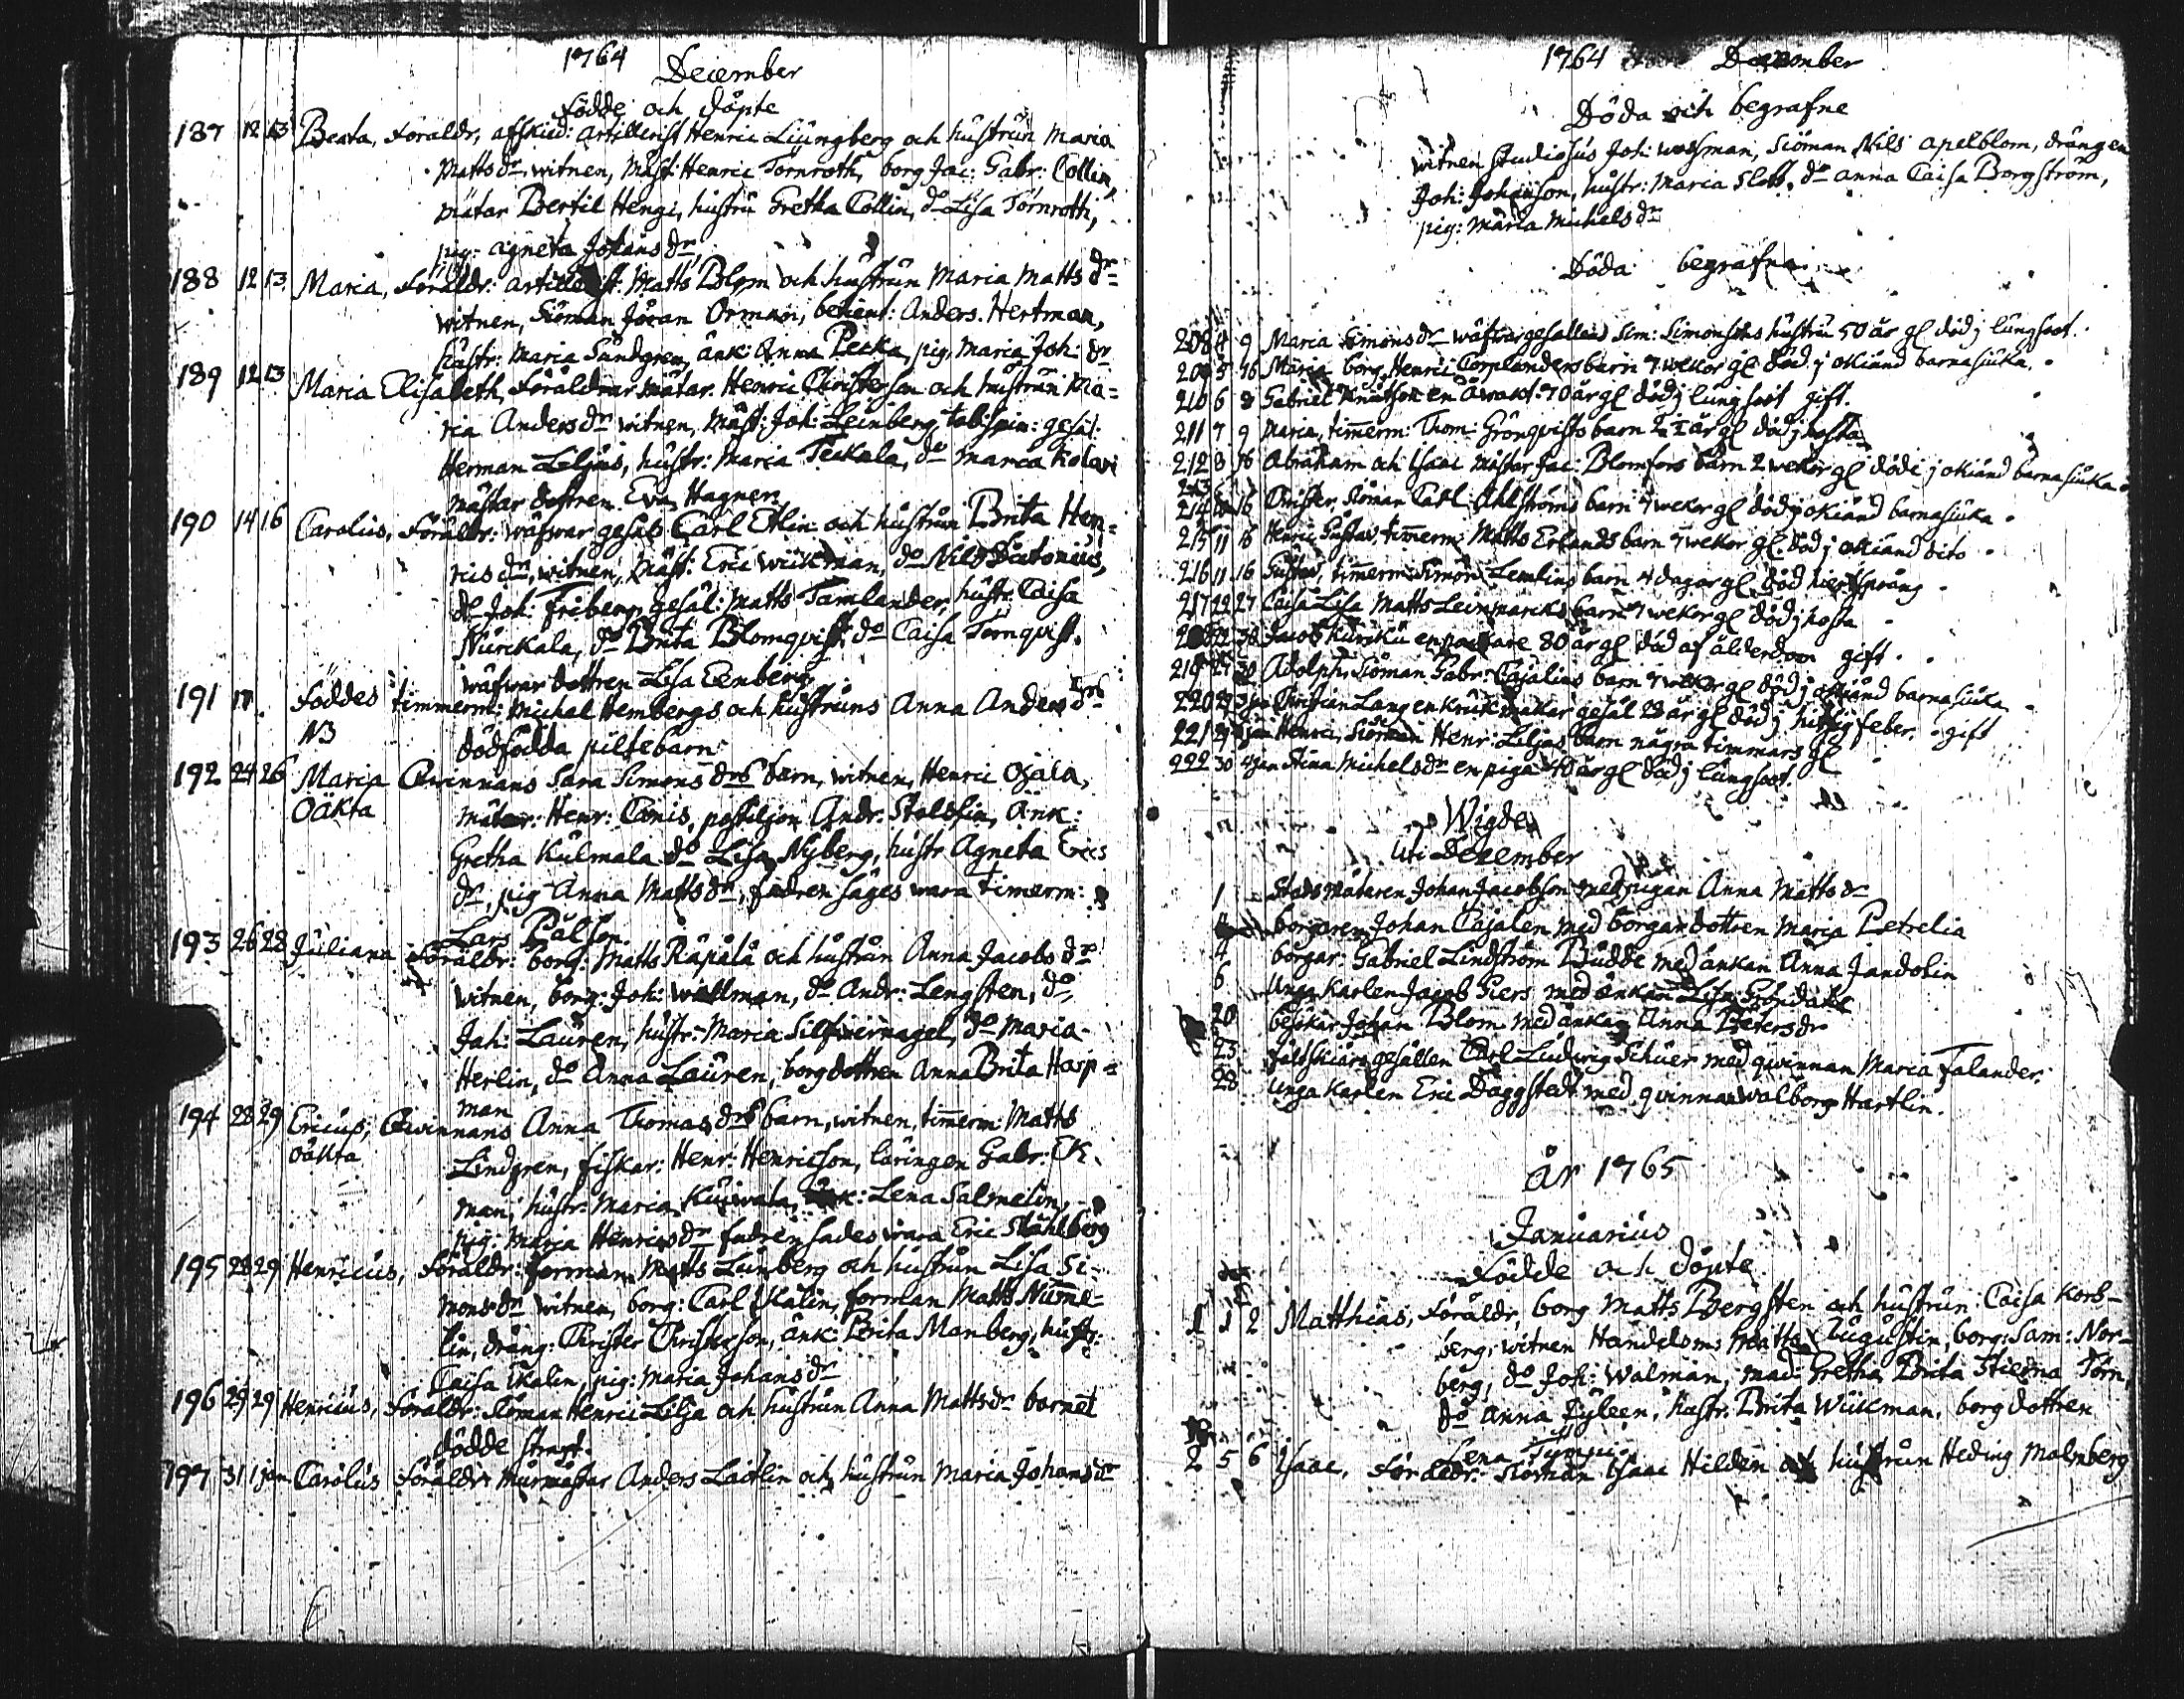 1764
December
Födde och döpte
187 12 13 Beata, Föräldr, afskied: artillerist Henric Liungberg och hustrun Maria
Matts dr. witnen, Mäst: Henric Törnroth, borg Jac: Gabr: Collin,
mätar Bertil Hengi, hustru Gretha Collin, do Lisa Törnroth,
pig: agneta Johans dr.
188 12 13 Maria, Föräldr: artillerist: Matts Blom och hustrun Maria Matts dr
witnen, Siöman Jöran Orman, betient: Anders Hertman,
hustr: Maria Sundgren, änk: Anna Pecka, pig. Maria Joh: dr
189 12 13 Maria Elisabeth, Föräldrar mätar Henric Christerson och hustrun Ma=
ria Anders dr witnen, Mäst: Joh: Leinberg, tob: spin: gesäl:
Herman Liljus, hustr: Maria Teckala, do Maria Kolari
mästar dottren Eva Hagner
190 14 16 Carolus, Föräldr: wäfwar gesäl Carl Etlin och hustrun Brita Hen=
rics dr, witnen, Mäst: Eric Wiikman, do Nils
do Joh: Friberg, gesäl: Matts Tamlander, hustr. Caisa
Nurckala, do Brita Blomqvist, do Caisa Törnqvist.
wäfwar dottren Lisa Eenberg
191 17 Föddes timmerm: Michel Hembergs och hustruns Anna Anders drs
NB dödfödda piltebarn
192 24 26 Maria Qwinnans Sara Simons drs barn, witnen, Henric Ojala,
Oäkta mätar: Henr: Tönis, postiljon Andr. Stoltsin, Änk:
Gretha Kulmala do Lisa Nyberg, hustr Agneta Erics
dr, pig Anna Matts dr, fadren säges wara timerm:
Lars Pålson.
193 26 28 Juliana Föräldr: borg: Matts Räpälä och hustrun Anna Jacobs dr
witnen, borg: Joh: Wallman, do Andr: Lengsten, do
Joh: Lauren, hustr: Maria Silfwernagel, do Maria
Herlin, do Anna Lauren, borg dottren Anna Brita Hasp=
man
194 28 29 Ericus, Qwinnans Anna Thomas drs barn, witnen, timerm: Matts
oäkta Lindgren, fiskar: Henr: Henricson, läringen Gabr: Ek=
man, hustr: Maria Kuiwala, änk: Lena Salmelin,
pig: Maria Henrics dr fadren sades wara Eric Ståhlberg
195 28 29 Henricus, Föräldr: forman Matts Lunberg och hustrun Lisa Si=
mons dr witnen, borg: Carl Ikalin, forman Matts Nume=
lin, dräng: Christer Christerson, änk: Brita Manberg, hustr:
Caisa Ikalin, pig: Maria Johans dr
196 29 29 Henricus, Föräldr: Siöman Henric Lilja och hustrun Anna Matts dr barnet
dödde strags.
197 31 1 jan Carolus Föräldr Murmästar Anders Laitlin och hustrun Maria Johans dr
1764 December
Döda och begrafne
witnen studiosus Joh: Wassman, Siöman Nils apelblom, drängen
Joh: Johanson, hustr: Maria Slott, do anna Caisa Borgström,
pig: Maria Michels dr
Döda begrafna
208 4 9 Maria Simons dr wäfwargesällens Sim: Simonsons hustru 50 år gl död j lungsoot.
209 5 16 Maria borg Henric Torplanders barn 7 wekor gl död j okiänd barnasiuka.
210 6 8 Gabriel Knutson en åwakt. 70 år gl död j lungsoot gift.
211 7 9 Maria, timerm: Thom: Grönqvists barn 2 år gl död j hosta
212 8 16 Abraham och Isaac mästar Jac: Blomfors barn 2 wekor gl döde j okiänd barnasiuka.
213
214 16 Christer, Siöman Carl Ahlströms barn 7 wekor gl död j okiänd barnasiuka.
215 11 16 Henric Gustav, timerm: Matts Erlands barn 7 wekor gl död j okiänd dito.
216 11 16 Gustav, timerm: Simon Lemlins barn 4 dagar gl död hiertsprång
217 22 27 Caisa Lisa Matts Leinmarcks barn 7 wekor gl död j hosta
22 30 Jacob Kurcku en packare 80 år gl död af ålderdom gift.
219 27 30 Adolph, Siöman Gabr: Cajalins barn 7 wekor gl död j okiänd barnasiuka.
220 Christian Lang en krukmakar gesäl 28 år gl död j hitzig feber. gift
221 29 Henric, Siöman Henr: Liljas barn några timmars gl
222 30 4 jan Stina Michels dr en piga 40 år gl död j lungsoot.
Wigde
uti December
1 Stads mätaren Johan Jacobson med pigan Anna Matts dr
borgaren Johan Cajalen med borgardottren Maria Petrelia
4 borgar: Gabriel Lindström Budde med änkan Anna Jandolin
6 Unga karlen Jacob Giers med änkan Lisa Gröndahl
20 besökar Johan Blom med änkan Anna Peters dr
23 fältskiärs gesällen Carl Ludwig Schuer med qwinnan Maria Falander.
28 Unga karlen Eric Daggstedt med qwinnan Walborg Hartlin.
år 1765
Januarius
Födde och döpte
1 1 2 Matthias, Föräldr, borg Matts Bergsten och hustrun Caisa Kors-
berg, witnen Handelsm: Matts Augustin, borg: Sam: Nor-
berg, do Joh: Walman, mad: Gretha Brita Stierna Törn,
do Anna Fyleen, hustr. Brita Wiikman, borg dottren
Lena
2 5 6 Isaac, Föräldr: Siöman Isaac Hilden och hustrun Hedvig Malmberg